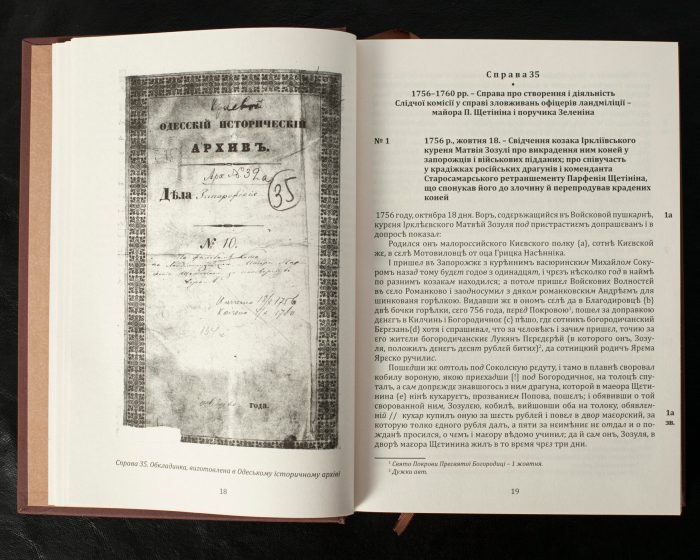 ОДЕССКІЙ ИСТОРИЧЕСКІЙ
АРХИВЪ.
Арх № 32а
Дѣла Запорожскіе
35
№ 10.
Начато 1756
Кончено 1760
года.
Справа 35. Обкладинка, виготовлена в Одеському історичному архіві
18
Справа 35
•
1756–1760 рр. – Справа про створення і діяльність
Слідчої комісії у справі зловживань офіцерів ландміліції –
майора П. Щетініна і поручика Зеленіна
№ 1
1756 р., жовтня 18. – Свідчення козака Іркліївського
куреня Матвія Зозулі про викрадення ним коней у
запорожців і військових підданих; про співучасть
у крадіжках російських драгунів і коменданта
Старосамарського ретраншементу Парфенія Щетініна,
що спонукав його до злочину й перепродував крадених
коней
1756 году, октября 18 дня. Воръ, содєржащийся въ Войсковой пушкарнѣ,
1а
курєня Ірклѣевского Матвѣй Зозуля под пристрастиємъ допрашеванъ и в
допросѣ показал:
Родился онъ малороссийского Киевского полку (а), сотнѣ Киевской
же, в сєлѣ Мотовиловцѣ от отца Грицка Насѣнника.
И пришел въ Запорожжѣ з курѣнним васюринским Михайлом Соку-
ромъ назад тому будет годов з одинадцат, и чрєз нѣсколко год в наймѣ
по разним козакам находился; а потом пришел Войскових Волностей
въ село Романково и заодносумил з дяком романковским Андрѣємъ для
шинкованя горѣлкою. Видавши жє в оном сєлѣ да в Благодировцѣ (b)
двѣ бочки горѣлки, сего 756 года, пєрєд Покровою¹, пошел за доправкою
дєнєгъ в Килчинь і Богородичноє (с) тѣшо, где сотникъ богородичанский
Бєрєзань(d) хотя і спрашивал, что за человѣкъ і зачим пришел, точию за
его жители богородичанские Лукянъ Пєрєдєрѣй (в которого онъ, Зозу-
ля, положилъ дєнєгъ дєсят рублей битих)², да сотницкий родичъ Ярєма
Ярєско ручилис.
Пошедши жє отполь под Соколскую рєдуту, і тамо в плавнѣ своровал
кобилу вороную, якою приєхадши [!] под Богородичноє, на толоцѣ спу-
талъ, а сам допрєждє знавшогось з ним драгуна, которой в маєора Щєти-
нина (е) нінѣ кухаруєтъ, прозванием Попова, пошелъ; і обявивши о той
сворованной ним, Зозулєю, кобилѣ, вийшовши оба на толоку, обявлен-
ной // кухар купил оную за шесть рублей і повел в двор маєорский, за
1а
зв.
которую толко єдного рубля далъ, а пяти за неимѣниє не отдал и о по-
жданѣ просился, о чемъ і маєору вѣдомо учинил; да й сам онъ, Зозуля, в
дворѣ маєора Щєтинина жилъ в то время чрєз три дни.
¹ Свято Покрови Пресвятої Богородиці – 1 жовтня.
² Дужки авт.
19